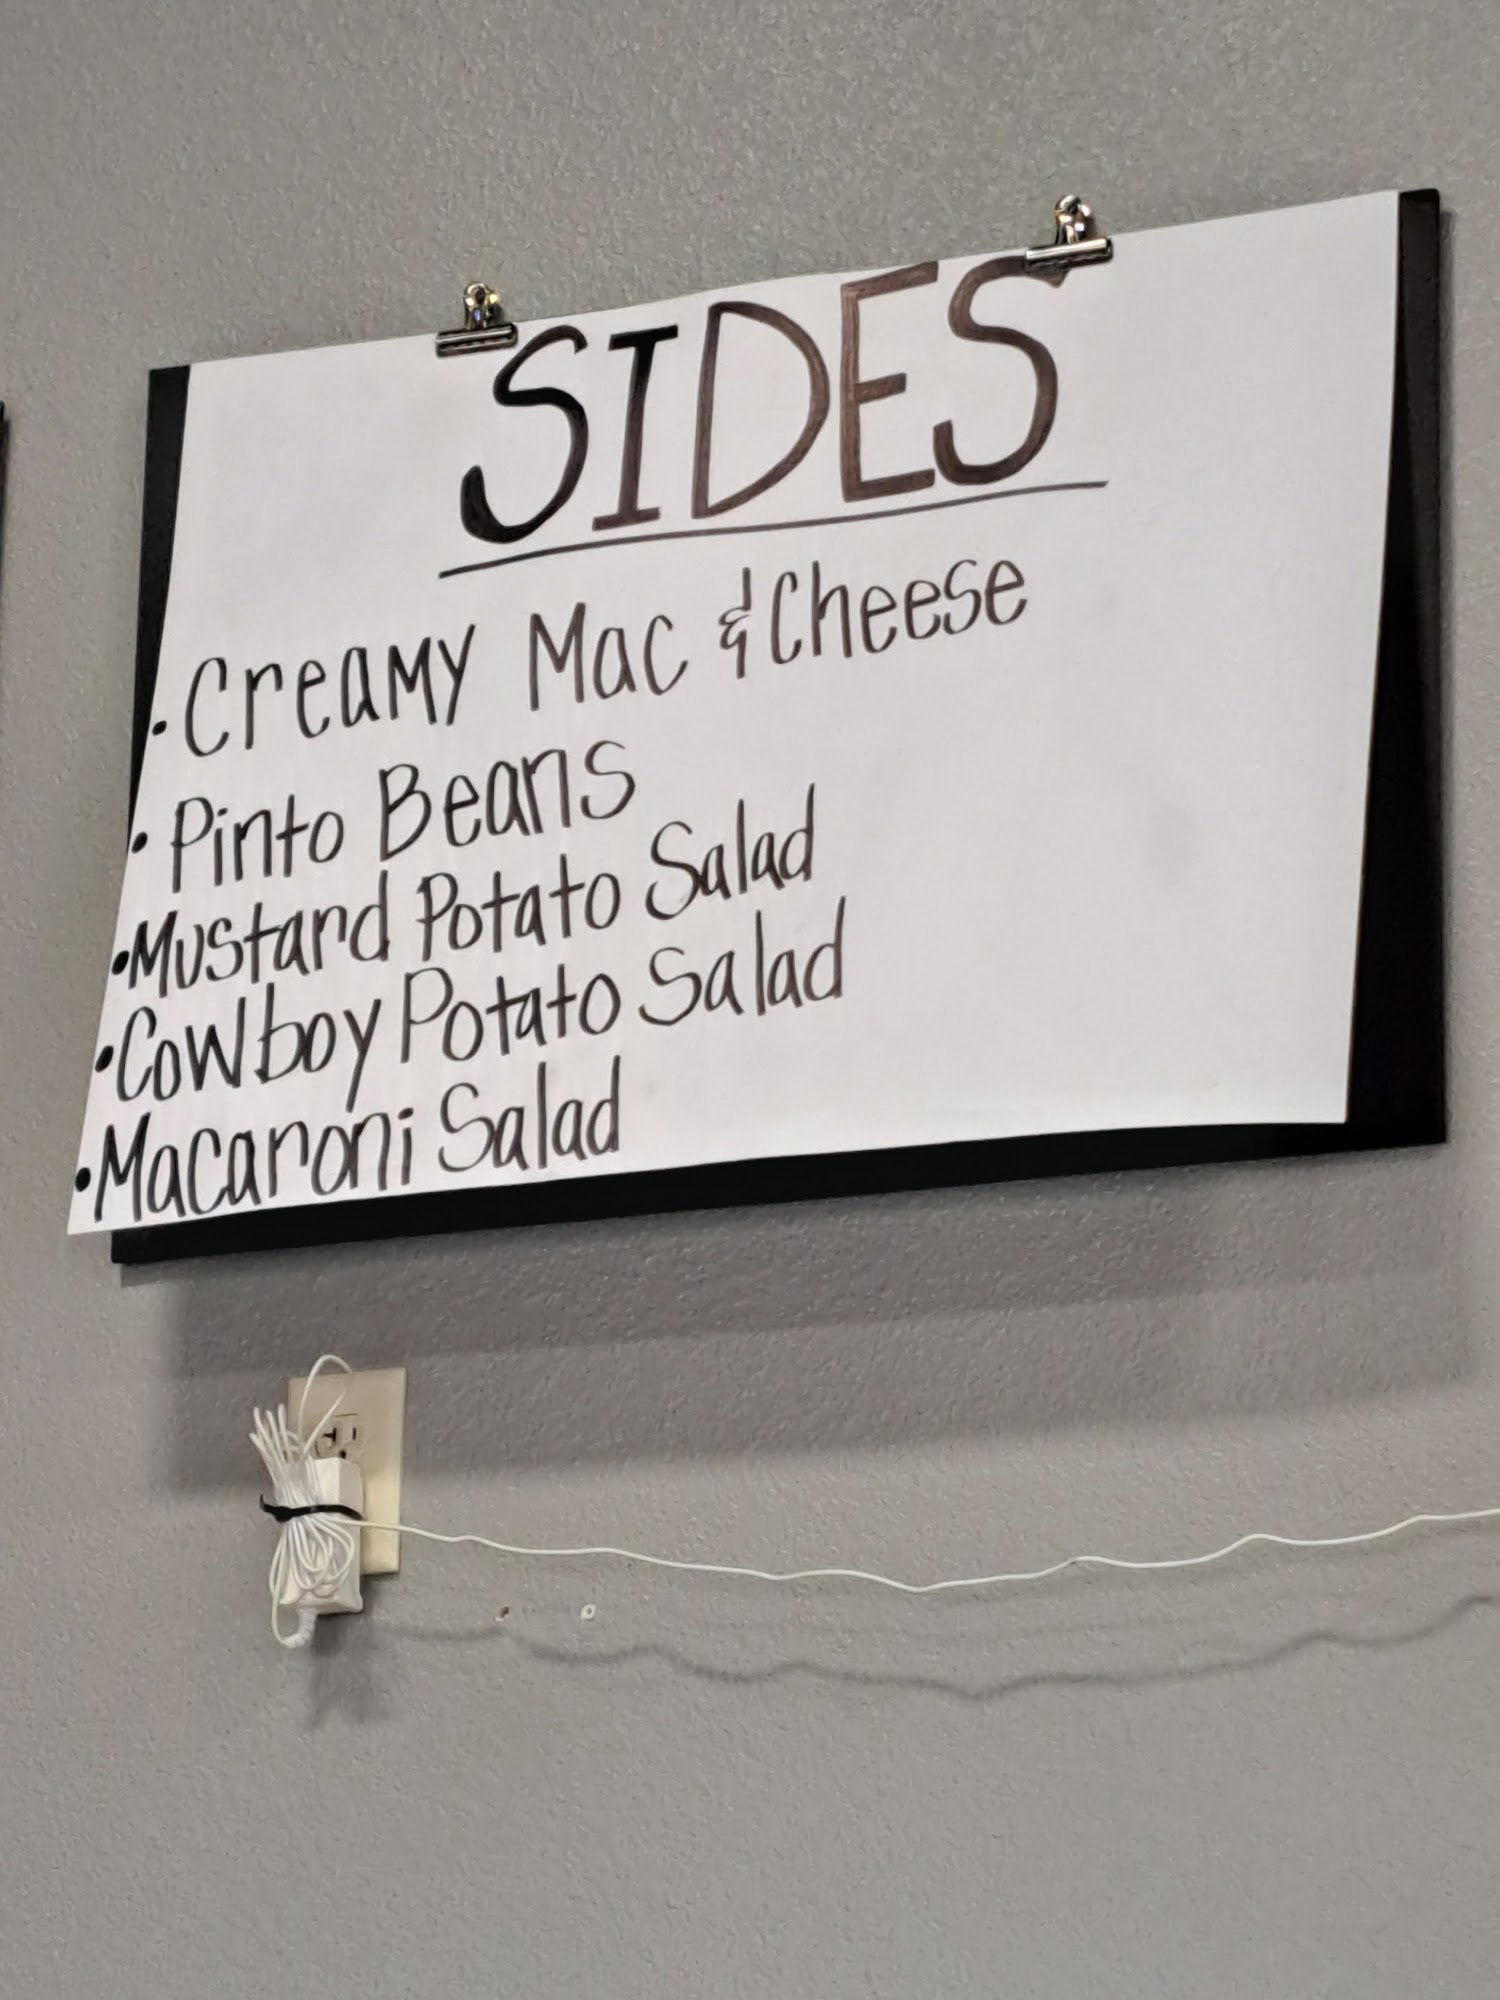 SIDES
• Creamy Mac & Cheese
• Pinto Beans
• Mustard Potato Salad
• Cowboy Potato Salad
• Macaroni Salad